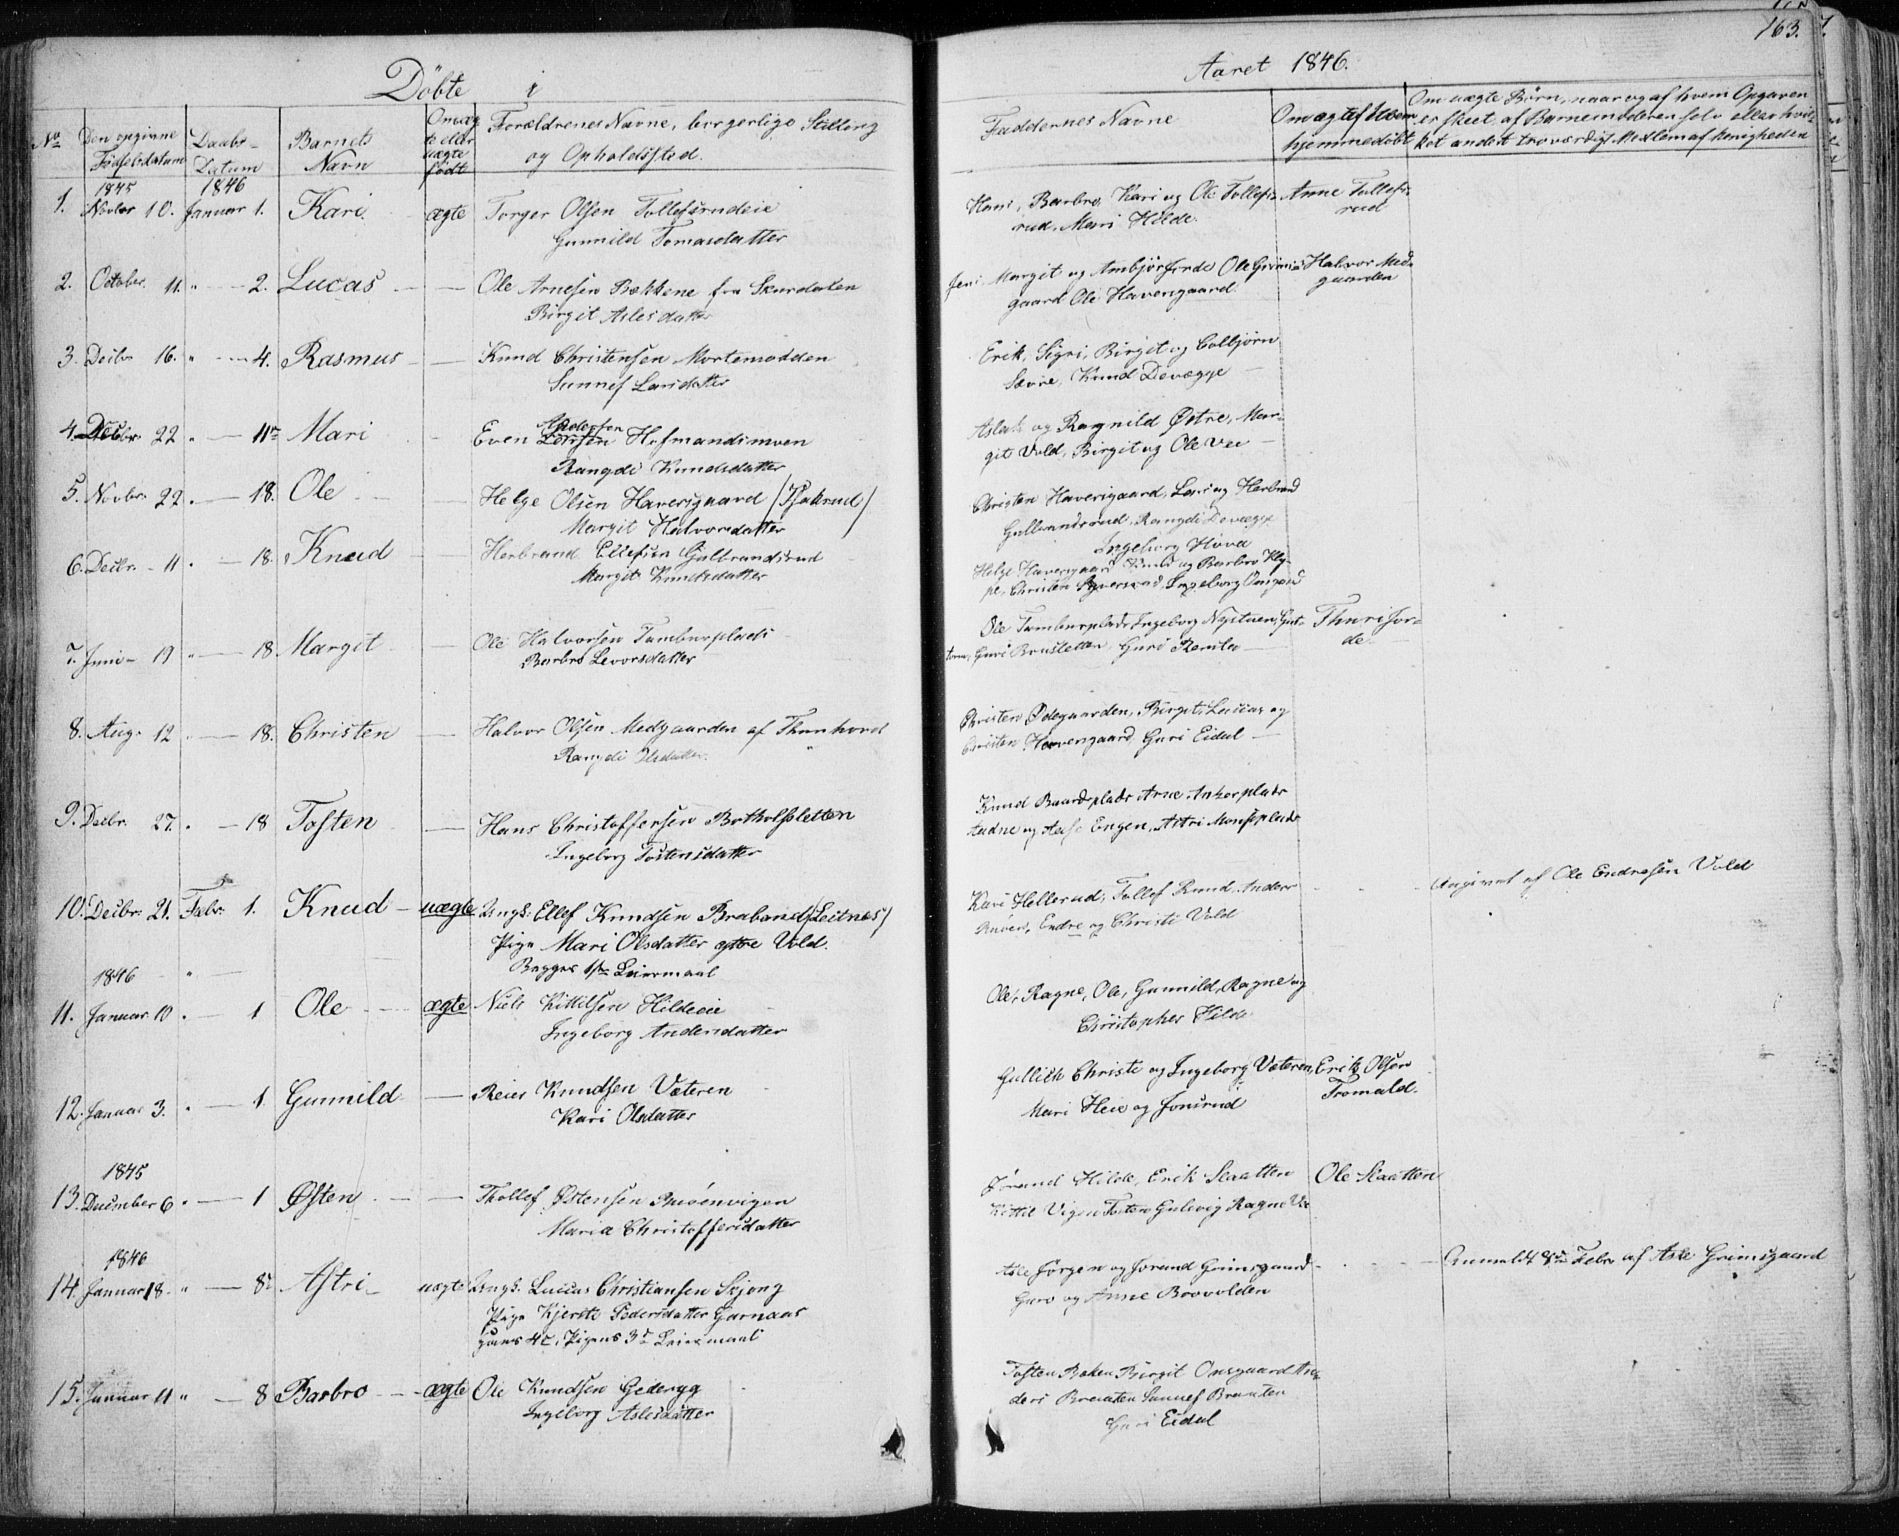 Döbte i
Aaret 1846.
163.
No
Den opgivne Födselsdatum
Daabs-Datum
Barnets Navn
Om ægte eller uægte födt
Forældrenes Navne, borgerlige Stilling og Opholdssted.
Faddernes Navne
hjemmedöbt
Om uægte Börn, naar og af hvem Opgaven er skeet, af Barnemoderen selv eller hvilket andet troværdigt Medlem af Menigheden
1845 1846
1. Novbr 10. Januar 1. Kari ægte Torger Olsen Tollefsrudeie
Gunnild Tomasdatter
Hans, Barbro, Kari og Ole Tollefs-
rud, Mari Hilde.
Anne Tollefs-
rud
2. October 11. " — 2. Lucas — Ole Arnesen Bækkene fra Skurdalen
Birgit Aslesdatter
Margit og Ole Grims-
gaard Ole Havensgaard.
Halvor Med-
gaarden
3. Decbr 16. " — 4. Rasmus — Knud Christensen Mortemodden
Sunnif Larsdatter
Erik, Sigri, Birgit og Colbjörn
Sævre, Knud Devægge —
4. Decbr. 22 " — 11te Mari — Even Andersen Hofmandsmoen
Rangdi Knudsdatter
Aslak og Ragnild Østre, Mar-
git Vold, Birgit og Ole Vee —
5. Novbr. 22. — 18. Ole — Helge Olsen Haversgaard /Kjakrud/
Margit Halvorsdatter
Christen Haversgaard, Lars og Herbrand
Gulbrandsrud, Rangdi Devægge
Ingeborg Hova
6. Decbr. - 11 . — 18. Knud — Herbrand Ellefsen Gulbrandsrud
Margit Knudsdatter
Helge Haversgaard Knud og Barbro Klep-
pe, Christen Ingeborg
7. Juni - 19 " — 18 Margit — Ole Halvorsen Tamburplads
Barbro Levorsdatter
Ole Tamburplads, Ingeborg Nystuen,
Guri Guri
Thuri Jor-
de.
8. Aug. 12 — 18. Christen — Halvor Olsen Medgaarden af Thunhovd
Rangdi Olsdatter.
Christen Ødegaarden, Birgit, Lucas og
Christen Havensgaard, Guri Eidal —
9. Decbr. 27. . — 18 Tosten — Hans Christoffersen Botholfsletten
Ingeborg Tostensdatter
Knud Baardsplads Arne Ankerplads
Audne og Aase Engen, Astri Monsplads
10. Decbr. 21. Febr. 1. Knud — uægte Ungk: Ellef Knudsen Braband /Leitnes/
Pige Mari Olsdatter øvre Vold.
Begges 1ste Leiermaal
Kari Hellerud, Tollef Ruud, Anders
Endre og Christi Vold
Angivet af Ole Endresen Vold
1846
11. Januar 10 . — 1 Ole — ægte Niels Kittilsen Hildeeie
Ingeborg Andersdatter
Ole, Ragne, Ole, Gunnild, Ragne og
Christopher Hilde
12. Januar 3. . — 1 Gunnild — Reier Knudsen Væteren
Kari Olsdatter
Gullik Christi og Ingeborg Væteren,
Mari Heie og Jonsrud
Erik Olsen
Tromald.
1845
13. December 6 . — 1 Østen — Thollef Østensen Brusenvigen
Maria Christoffersdatter
Jörand Hilde, Erik Slaatten
Kittil Vigen Tosten Gulsvig Ragne Vee
Ole Slaatten
1846
14. Januar 18. " — 8de Astri — uægte Ungk: Lucas Christiansen Skjong
Pige Kjersti Pedersdatter Garnaas
Hans 4de, Pigens 3de Leiermaal
Asle Jörgen og Jorand Grimsgaard
Guro og Anne Brovolden
Anmeldt 8de Febr. af Asle Grimsgaard
15. Januar 11 " — 8 Barbro — ægte Ole Knudsen Gederyg
Ingeborg Aslesdatter
Tosten Bakken Birgit Onsgaard An-
ders Braaten Sunnef Braaten
Guri Eidal